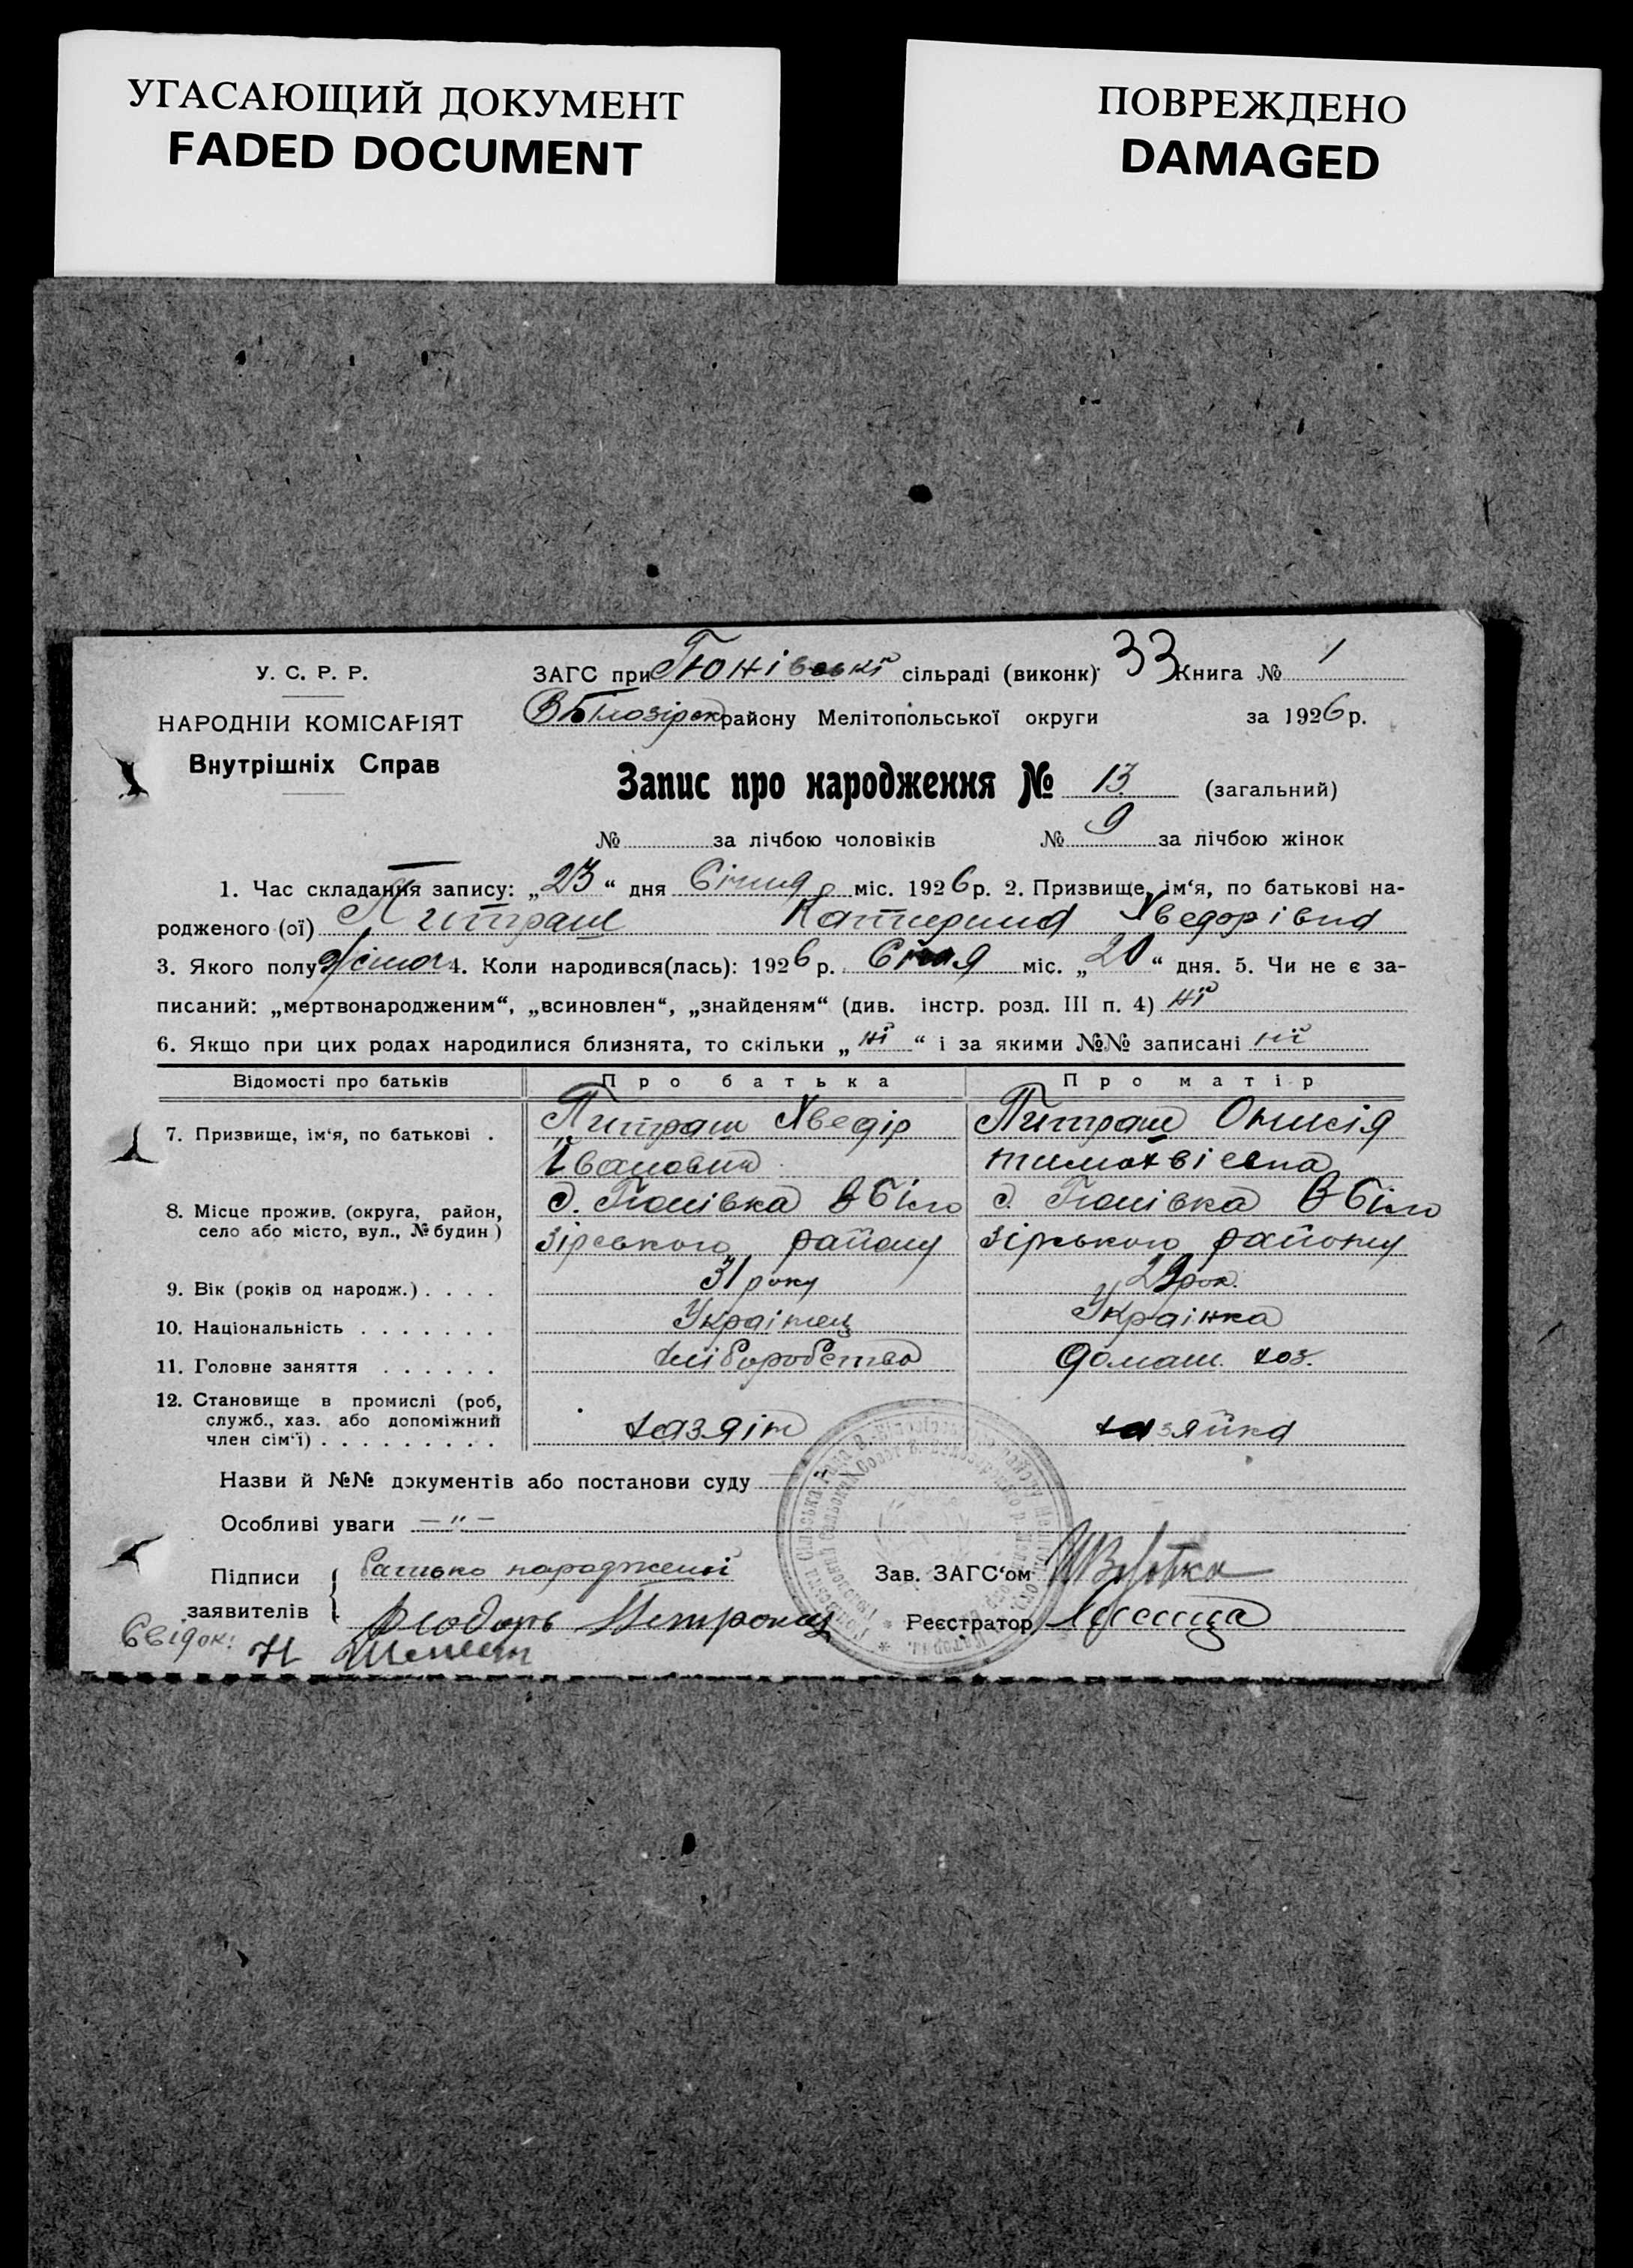 УГАСАЮЩИЙ ДОКУМЕНТ
FADED DOCUMENT
ПОВРЕЖДЕНО
DAMAGED
У. С. Р. Р.
НАРОДНІЙ КОМІСАРІЯТ
Внутрішніх Справ
ЗАГС при Гюнівські сільраді (виконк) 33 Книга № 1
В Білозірск району Мелітопольської округи за 1926 р.
Запис про народження № 13 (загальний)
№ за лічбою чоловіків № 9 за лічбою жінок
1. Час складання запису: „23“ дня Січня міс. 1926 р. 2. Призвище, ім‘я, по батькові на-
родженого (ої) Питраш Катирина Хведорівна
3. Якого полу жіноч 4. Коли народився(лась): 1926 р. Січня міс. „20“ дня. 5. Чи не є за-
писаний: „мертвонародженим“, „всиновлен“, „знайденям“ (див. інстр. розд. III п. 4) ні
6. Якщо при цих родах народилися близнята, то скільки „ні“ і за якими №№ записані ні
Відомості про батьків Про батька Про матір
7. Призвище, ім‘я, по батькові . Питраш Хведір Питраш Онисія
Іванович тимохвіевна
8. Місце прожив. (округа, район, д. Гюнівка В Біло д. Гюнівка В Біло
село або місто, вул., № будин) зірського району зірського району
9. Вік (років од народж.) . . . . 31 року 29 рок.
10. Національність . . . . . . . Українец Українка
11. Головне заняття . . . . . . хліборобство домаш. хоз.
12. Становище в промислі (роб,
служб., хаз. або допоміжний
член сім‘ї) . . . . . . . . . хазяін хазяйка
Назви й №№ документів або постанови суду
Особливі уваги — „ —
Підписи батько народженоі Зав. ЗАГС‘ом
заявителів Реєстратор
Свідок: Н